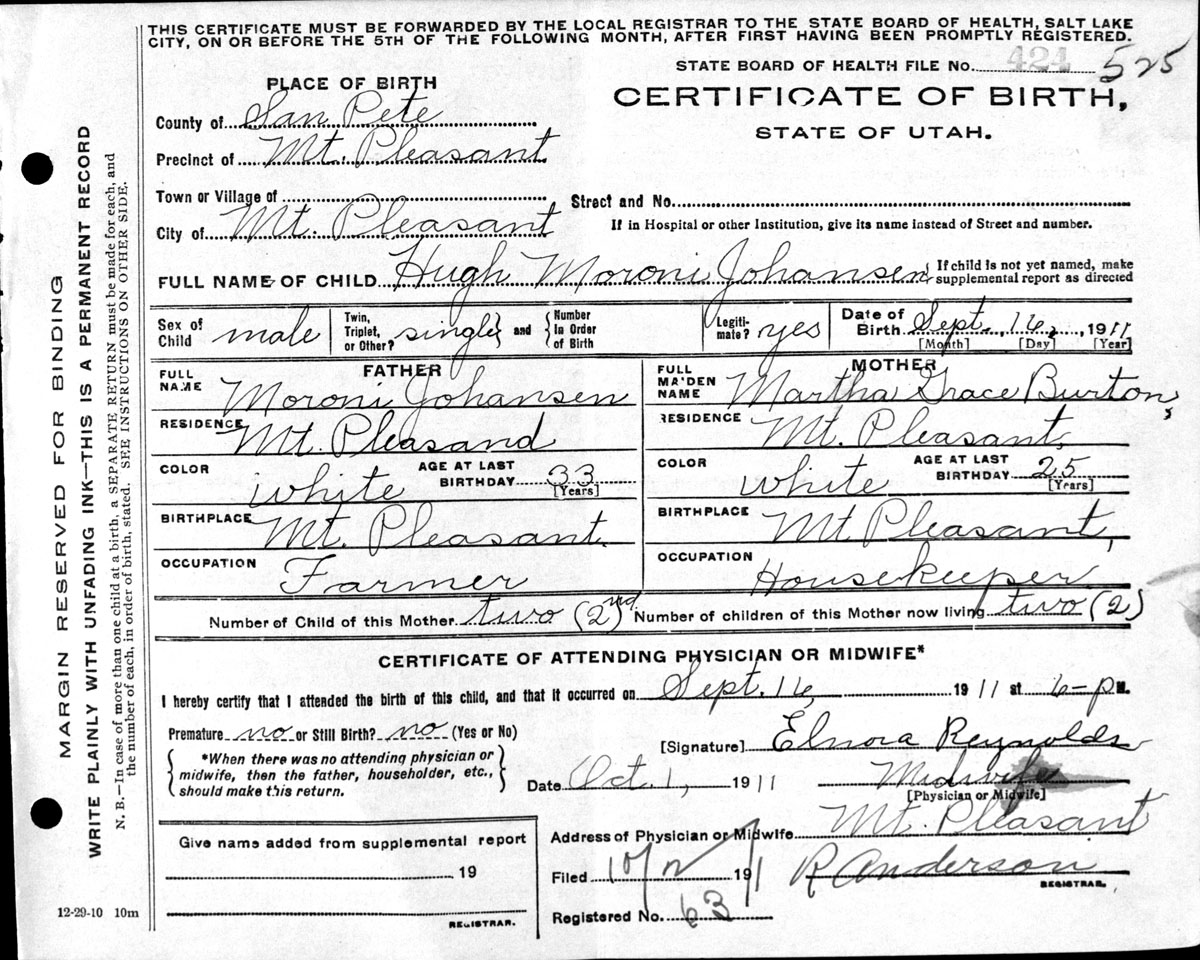 THIS CERTIFICATE MUST BE FORWARDED BY THE LOCAL REGISTRAR TO THE STATE BOARD OF HEALTH, SALT LAKE
CITY, ON OR BEFORE THE 5TH OF THE FOLLOWING MONTH, AFTER FIRST HAVING BEEN PROMPTLY REGISTERED.
MARGIN RESERVED FOR BINDING
WRITE PLAINLY WITH UNFADING INK—THIS IS A PERMANENT RECORD
N. B.—In case of more than one child at a birth, a SEPARATE RETURN must be made for each, and
the number of each, in order of birth, stated. SEE INSTRUCTIONS ON OTHER SIDE.
STATE BOARD OF HEALTH FILE NO. 424 525
PLACE OF BIRTH
CERTIFICATE OF BIRTH,
STATE OF UTAH.
County of San Pete
Precinct of Mt. Pleasant
Town or Village of
Street and No.
City of Mt. Pleasant
If in Hospital or other Institution, give its name instead of Street and number.
FULL NAME OF CHILD Hugh Moroni Johansen { If child is not yet named, make
supplemental report as directed
Sex of Child male
Twin, Triplet, or Other? single } and { Number In Order of Birth
Legiti-mate? yes
Date of Birth Sept. 16, 1911
[Month] [Day] [Year]
FATHER
FULL NAME Moroni Johansen
RESIDENCE Mt. Pleasand
COLOR white AGE AT LAST BIRTHDAY 33 [Years]
BIRTHPLACE Mt. Pleasant.
OCCUPATION Farmer
MOTHER
FULL MAIDEN NAME Martha Grace Burton,
RESIDENCE Mt. Pleasant,
COLOR white AGE AT LAST BIRTHDAY 25 [Years]
BIRTHPLACE Mt Pleasant,
OCCUPATION Housekeeper
Number of Child of this Mother two (2nd) Number of children of this Mother now living two (2)
CERTIFICATE OF ATTENDING PHYSICIAN OR MIDWIFE*
I hereby certify that I attended the birth of this child, and that it occurred on Sept. 16, 1911 at 6- P M.
Premature no or Still Birth? no (Yes or No)
*When there was no attending physician or
midwife, then the father, householder, etc.,
should make this return.
[Signature] Elnora Reynolds
Date Oct. 1, 1911 Midwife
[Physician or Midwife]
Address of Physician or Midwife Mt. Pleasant
Give name added from supplemental report
19
REGISTRAR.
Filed 10/2/ 1911 R Anderson
REGISTRAR.
Registered No. 63
12-29-10 10m